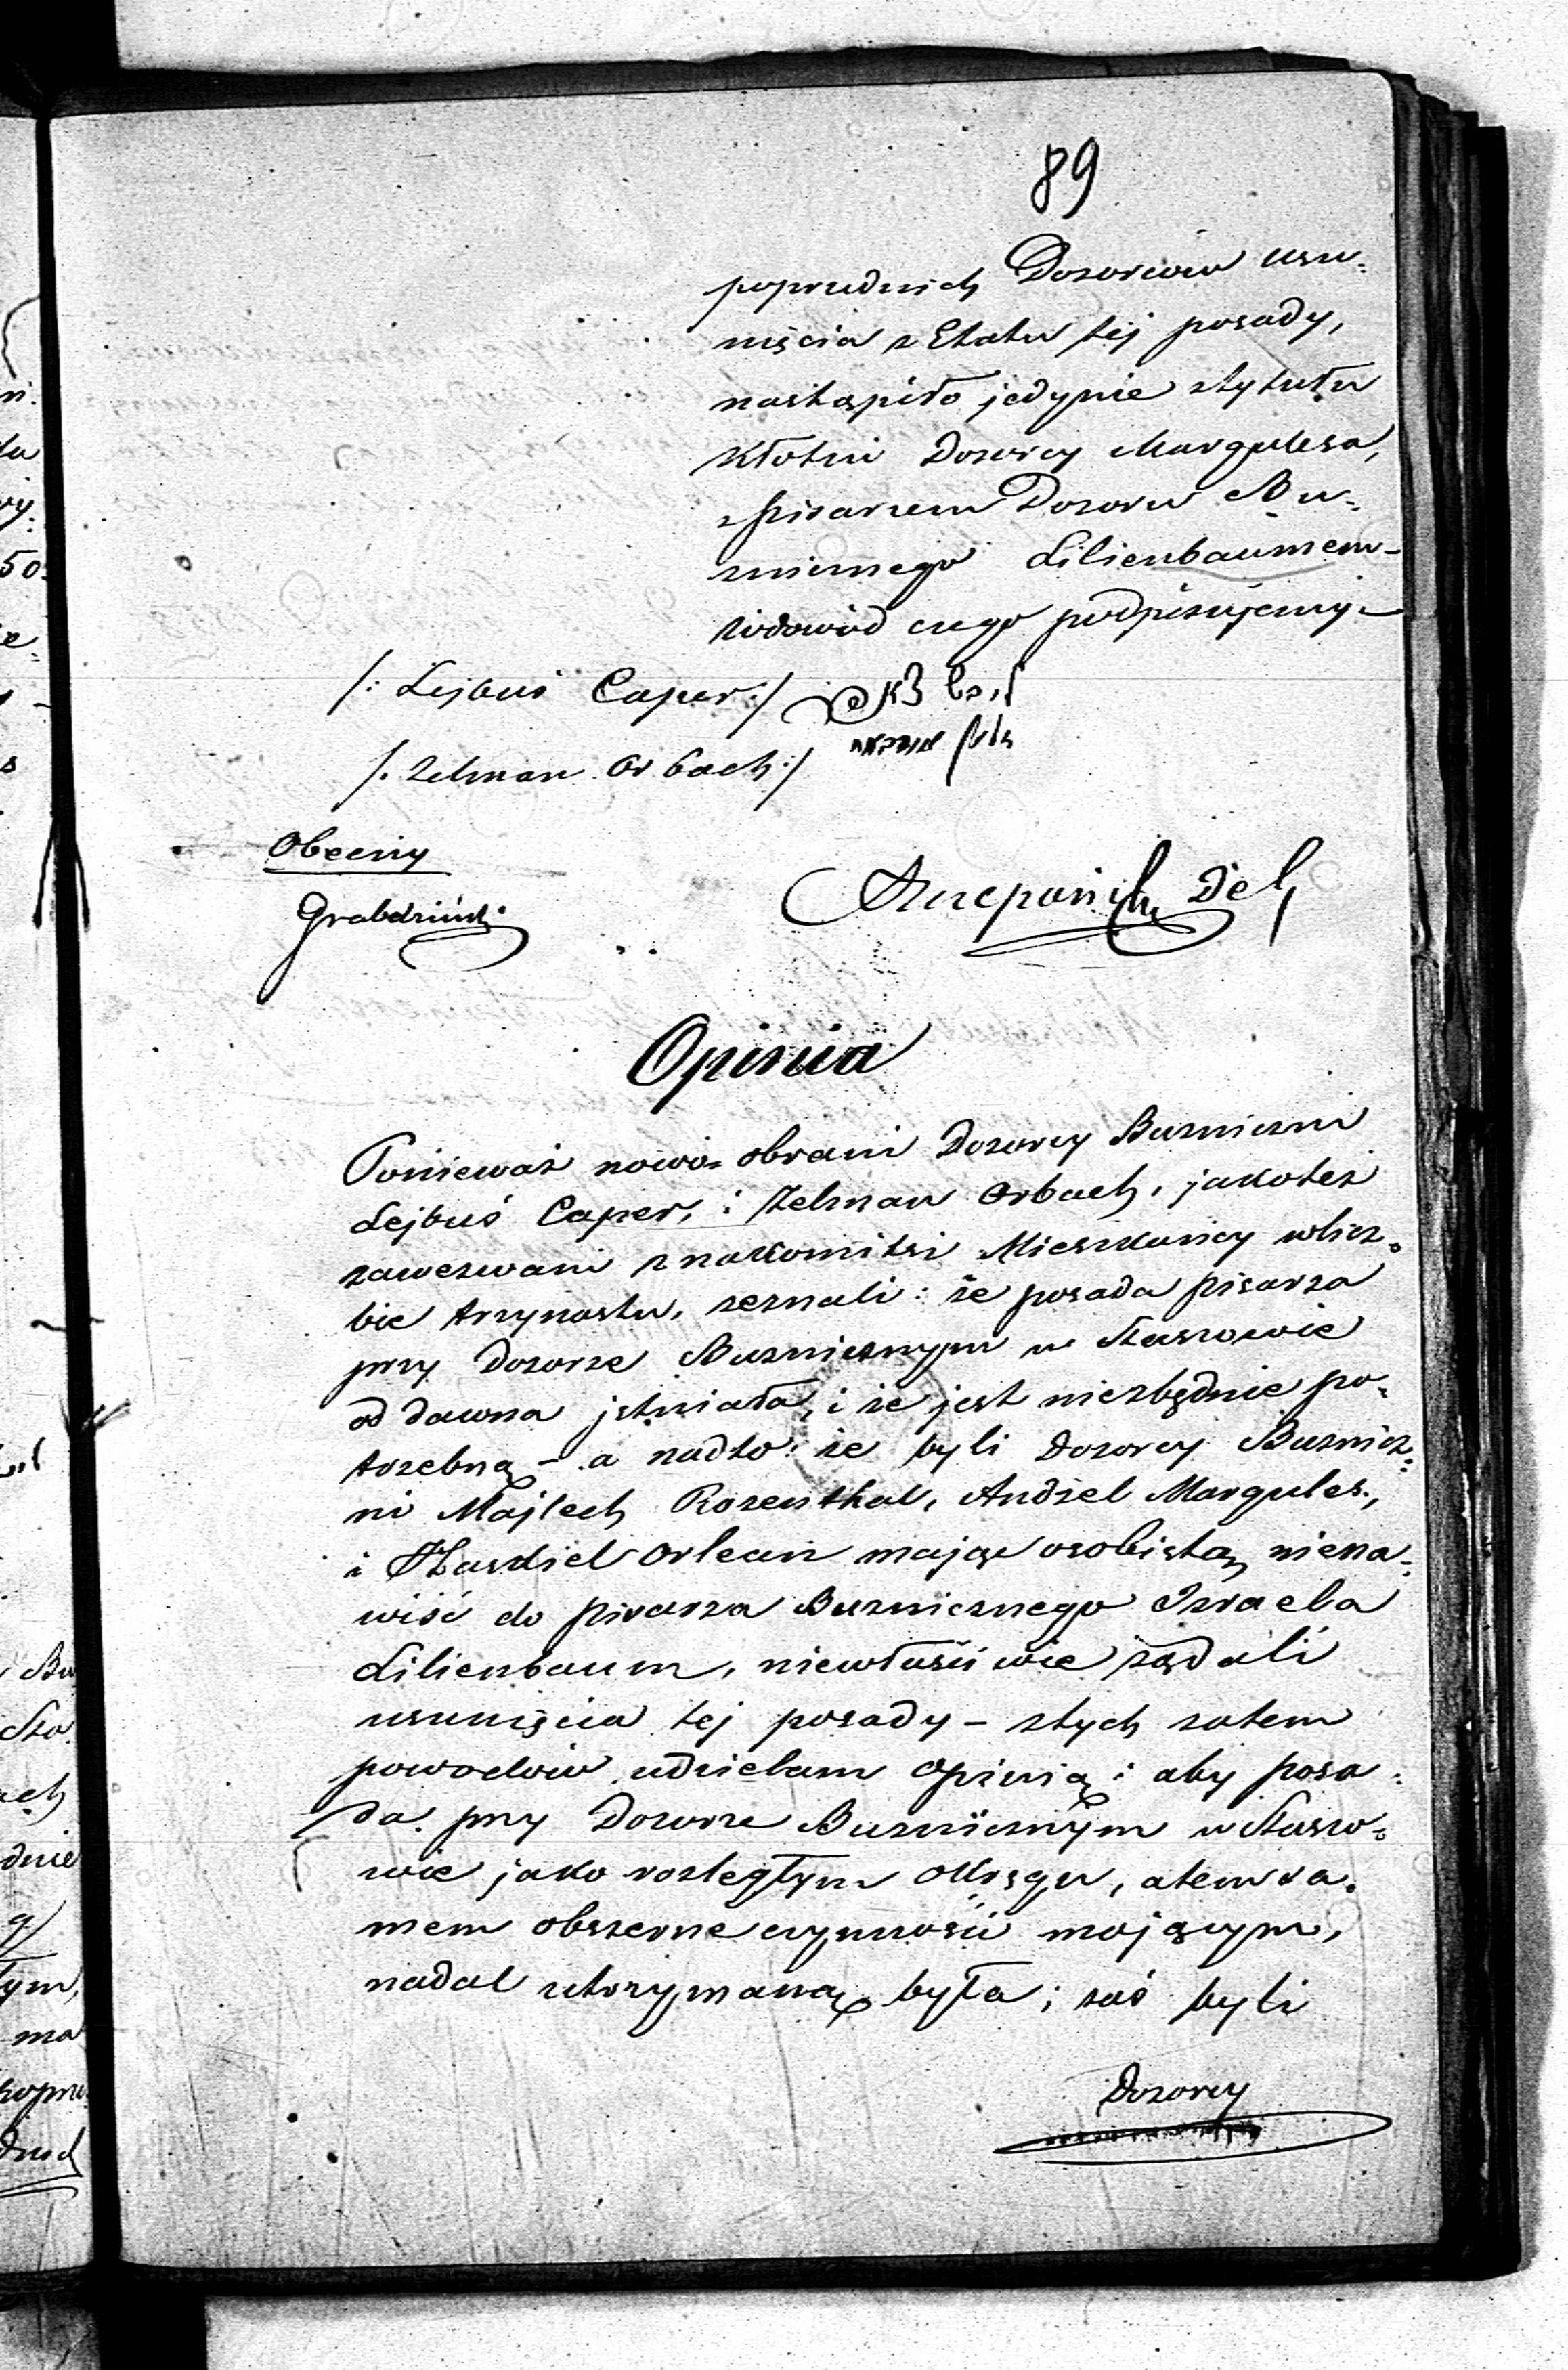 89
poprzednich Dozorców usu=
nięcia z Etatu tej posady,
nastąpiło jedynie ztytułu
Kłótni Dozorcy Margulesa,
z pisarzem Dozoru Bu=
zniznego Lilienbaumem -
wdowód czego podpisujemy.
/: Lejbuś Caper :/
/: Zelman Orbach :/
Obecny
Opinia
Poniewaz nowo obrani Dozorcy Bużniczni
Lejbuś Caper, i Zelman Orbach, jakoteż
zawezwani znakomitsi Mieszkańcy wlicz=
bie trzynastu, zeznali: że posada pisarza
przy Dozorze Bużnicznym w Staszowie
od dawna jstniała, i że jest niezbędnie po=
trzebną - a nadto: że byli Dozorcy Bużnicz=
ni Majlech Rozenthal, Andzel Margules,
i Chaskiel Orlean mając osobistą niena=
wiść do pisarza Bużnicznego Izraela
Lilienbaum, niewłaściwie żądali
usunięcia tej posady - ztych zatem
powodów udzielam opinią: aby posa=
da przy Dozorze Bużnicznym w Staszo=
wie jako rozległym Okręgu, atem sa=
mem obszerne czynności mającym,
nadal utrzymaną była; zaś byli
Dozorcy